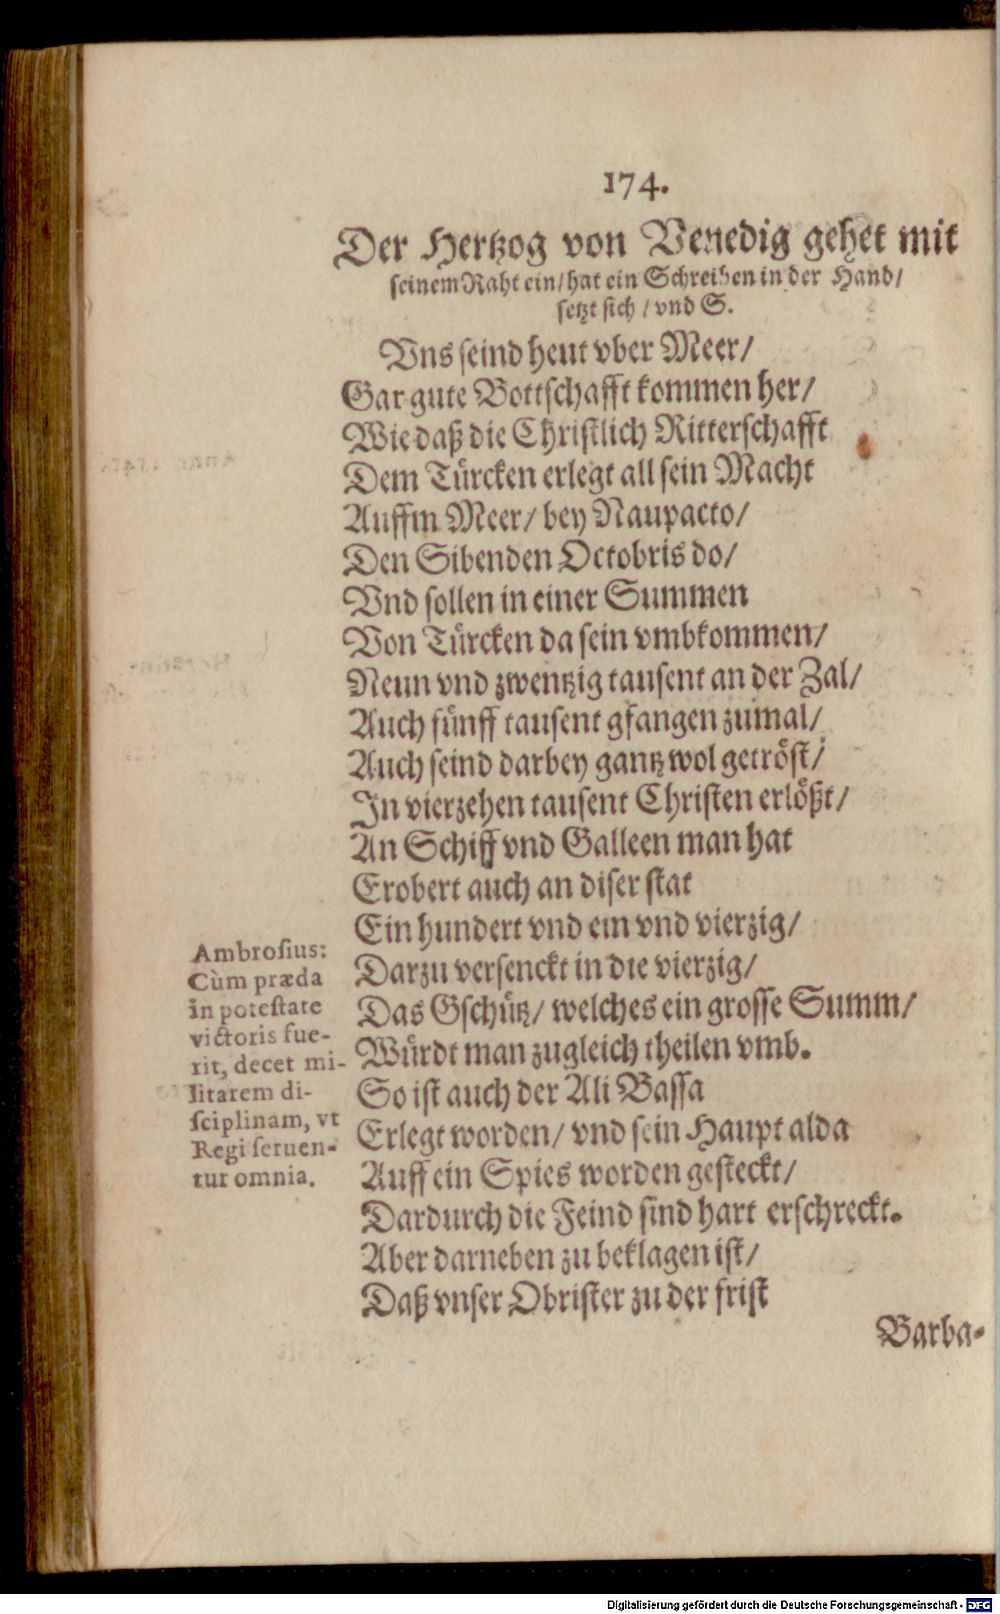 174.
Der Hertzog von Venedig gehet mit
seinem Raht ein/ hat ein Schreiben in der Hand/
setzt sich / vnd S.
Vns seind heut vber Meer/
Gar gute Bottschafft kommen her/
Wie daß die Christlich Ritterschafft
Dem Türcken erlegt all sein Macht
Auffm Meer/ bey Naupacto/
Den Sibenden Octobris do/
Vnd sollen in einer Summen
Von Türcken da sein vmbkommen/
Neun vnd zwentzig tausent an der Zal/
Auch fünff tausent gfangen zumal/
Auch seind darbey gantz wol getröst/
In vierzehen tausent Christen erlößt/
An Schiff vnd Galleen man hat
Erobert auch an diser stat
Ein hundert vnd ein vnd vierzig/
Darzu versenckt in die vierzig/
Das Gschütz/ welches ein grosse Summ/
Würdt man zugleich theilen vmb.
So ist auch der Ali Bassa
Erlegt worden/ vnd sein Haupt alda
Auff ein Spies worden gesteckt/
Dardurch die Feind sind hart erschreckt.
Aber darneben zu beklagen ist/
Daß vnser Obrister zu der frist
Barba-
Ambrosius:
Cùm præda
in potestate
victoris fue-
rit, decet mi-
litarem di-
sciplinam, vt
Regi seruen-
tur omnia.
Digitalisierung gefördert durch die Deutsche Forschungsgemeinschaft - DFG